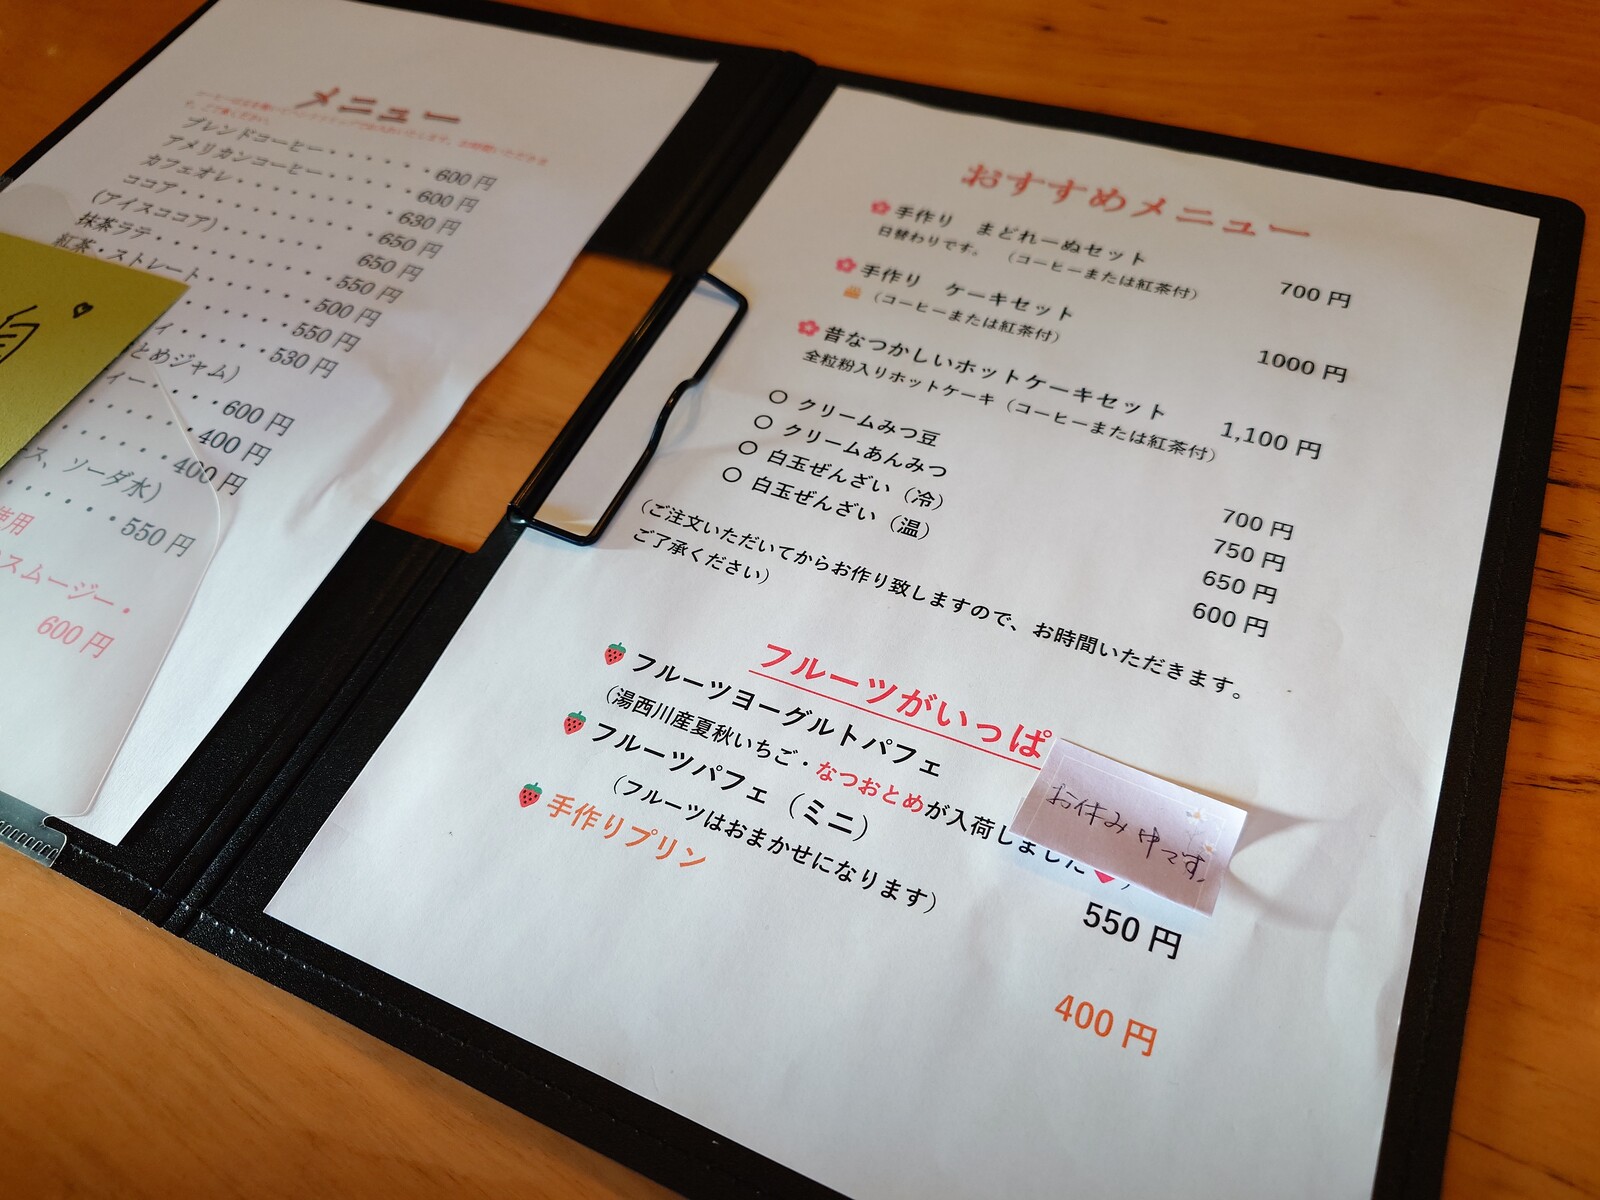 メニュー
ブレンドコーヒー・・・・・・600 円
アメリカンコーヒー・・・・・600 円
カフェオレ・・・・・・・・・630 円
ココア・・・・・・・・・・・650 円
(アイスココア)・・・・・・650 円
抹茶ラテ・・・・・・・・・・550 円
紅茶・ストレート・・・・・・500 円
・・・・・550 円
ィ・・・・・530 円
とめジャム)
ィー・・・600 円
・・・・・400 円
・・・・・400 円
ス、ソーダ水)
・・・・・550 円
使用
スムージー・
600 円
おすすめメニュー
手作り　まどれーぬセット
日替わりです。　(コーヒーまたは紅茶付)
700 円
手作り　ケーキセット
(コーヒーまたは紅茶付)
1000 円
昔なつかしいホットケーキセット
全粒粉入りホットケーキ (コーヒーまたは紅茶付)
1,100 円
○ クリームみつ豆 700 円
○ クリームあんみつ 750 円
○ 白玉ぜんざい (冷) 650 円
○ 白玉ぜんざい (温) 600 円
(ご注文いただいてからお作り致しますので、お時間いただきます。
ご了承ください)
フルーツがいっぱ
フルーツヨーグルトパフェ
(湯西川産夏秋いちご・なつおとめが入荷しました♥)
お休み中です。
フルーツパフェ (ミニ)
550 円
(フルーツはおまかせになります)
手作りプリン
400 円